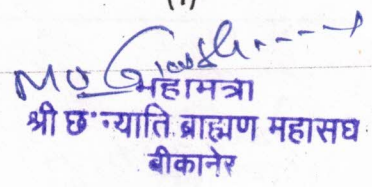 महामंत्री
श्री छः न्याति ब्राह्मण महासंघ
बीकानेर